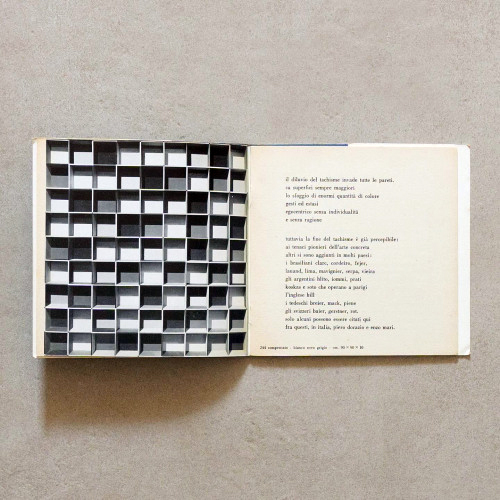 il diluvio del tachisme invade tutte le pareti.
su superfici sempre maggiori
lo sfoggio di enormi quantità di colore
gesti ed estasi
egocentrico senza individualità
e senza ragione
tuttavia la fine del tachisme è già percepibile:
ai tenaci pionieri dell'arte concreta
altri si sono aggiunti in molti paesi:
i brasiliani claro, cordeiro, fejer,
lauand, lima, mavignier, serpa, vieira
gli argentini blito, tommi, prati
koskas e soto che operano a parigi
l'inglese hill
i tedeschi breier, mack, piene
gli svizzeri baier, gerstner, rot.
solo alcuni possono essere citati qui
fra questi, in italia, piero dorazio e enzo mari.
bianco nero grigio